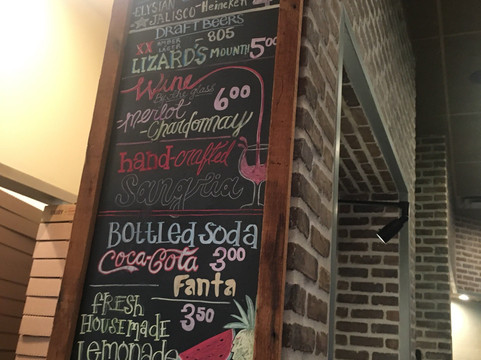 ELYSIAN
JALISCO-Heineken
DRAFT BEERS
XX AMBER LAGER - 805
LIZARD'S MOUNTH 500
Wine
By the glass
-merlot 600
-Chardonnay
hand-crafted
Sangria
BOTTLED SODA
COCA-COLA 300
FANTA
350
FRESH
HOUSEMADE
LEMONADE